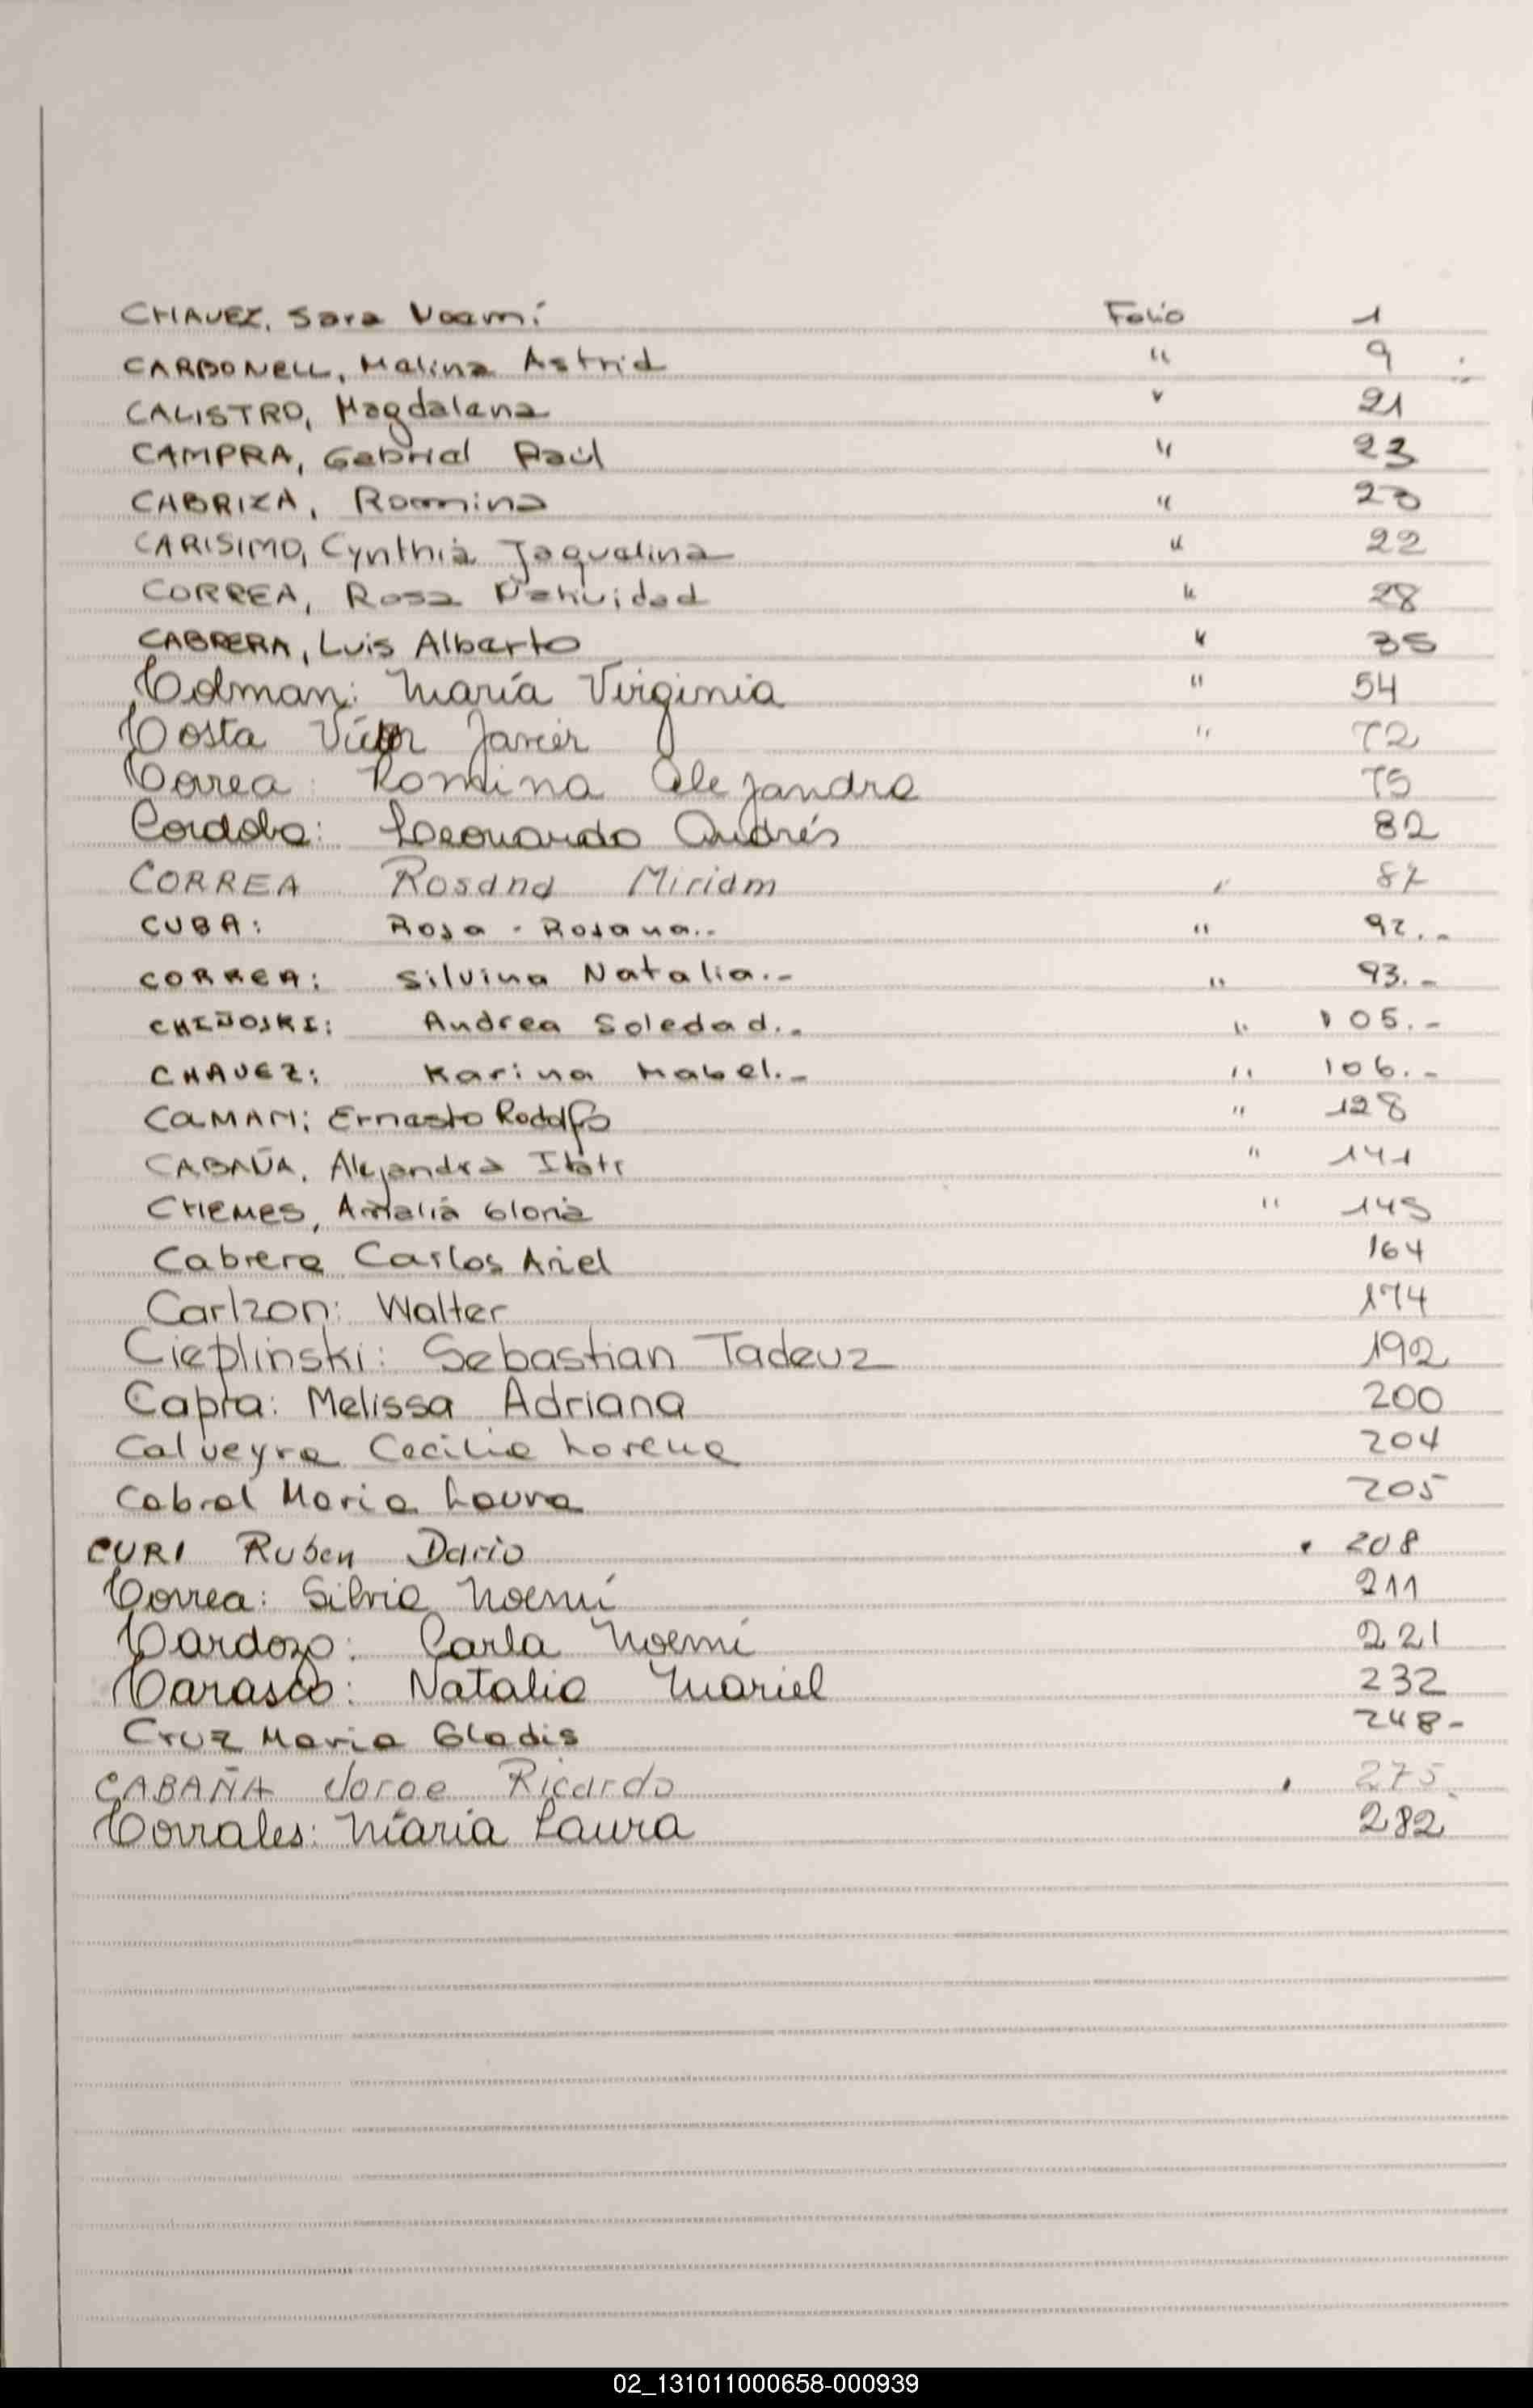 CHAVEZ, Sara Noemí Folio 1
CARBONELL, Malina Astrid " 9
CALISTRO, Magdalena " 21
CAMPRA, Gabriel Raúl " 23
CABRIZA, Romina " 20
CARISIMO, Cynthia Jaquelina " 22
CORREA, Rosa Natividad " 28
CABRERA, Luis Alberto " 35
Colman: María Virginia " 54
Costa Víctor Javier " 72
Correa: Romina Alejandra 75
Cordoba: Leonardo Andrés 82
CORREA Rosana Miriam " 87
CUBA: Rosa - Rosana.- " 92.-
CORREA: Silvina Natalia.- " 93.-
CHIÑOSKI: Andrea Soledad.- " 105.-
CHAVEZ: Karina Mabel.- " 106.-
CAMAN; Ernesto Rodolfo " 128
CABAÑA, Alejandra Itatí " 141
CHEMES, Amalia Gloria " 145
Cabrera Carlos Ariel 164
Carlzon: Walter 174
Cieplinski: Sebastian Tadeuz 192
Capra: Melissa Adriana 200
Calveyra Cecilia Lorena 204
Cabral Maria Laura 205
CURI Ruben Dario 208
Correa: Silvia Noemí 211
Cardozo: Carla Noemí 221
Carasco: Natalia Mariel 232
Cruz Maria Gladis 248-
CABAÑA Jorge Ricardo 275
Corrales: María Laura 282
02_131011000658-000939